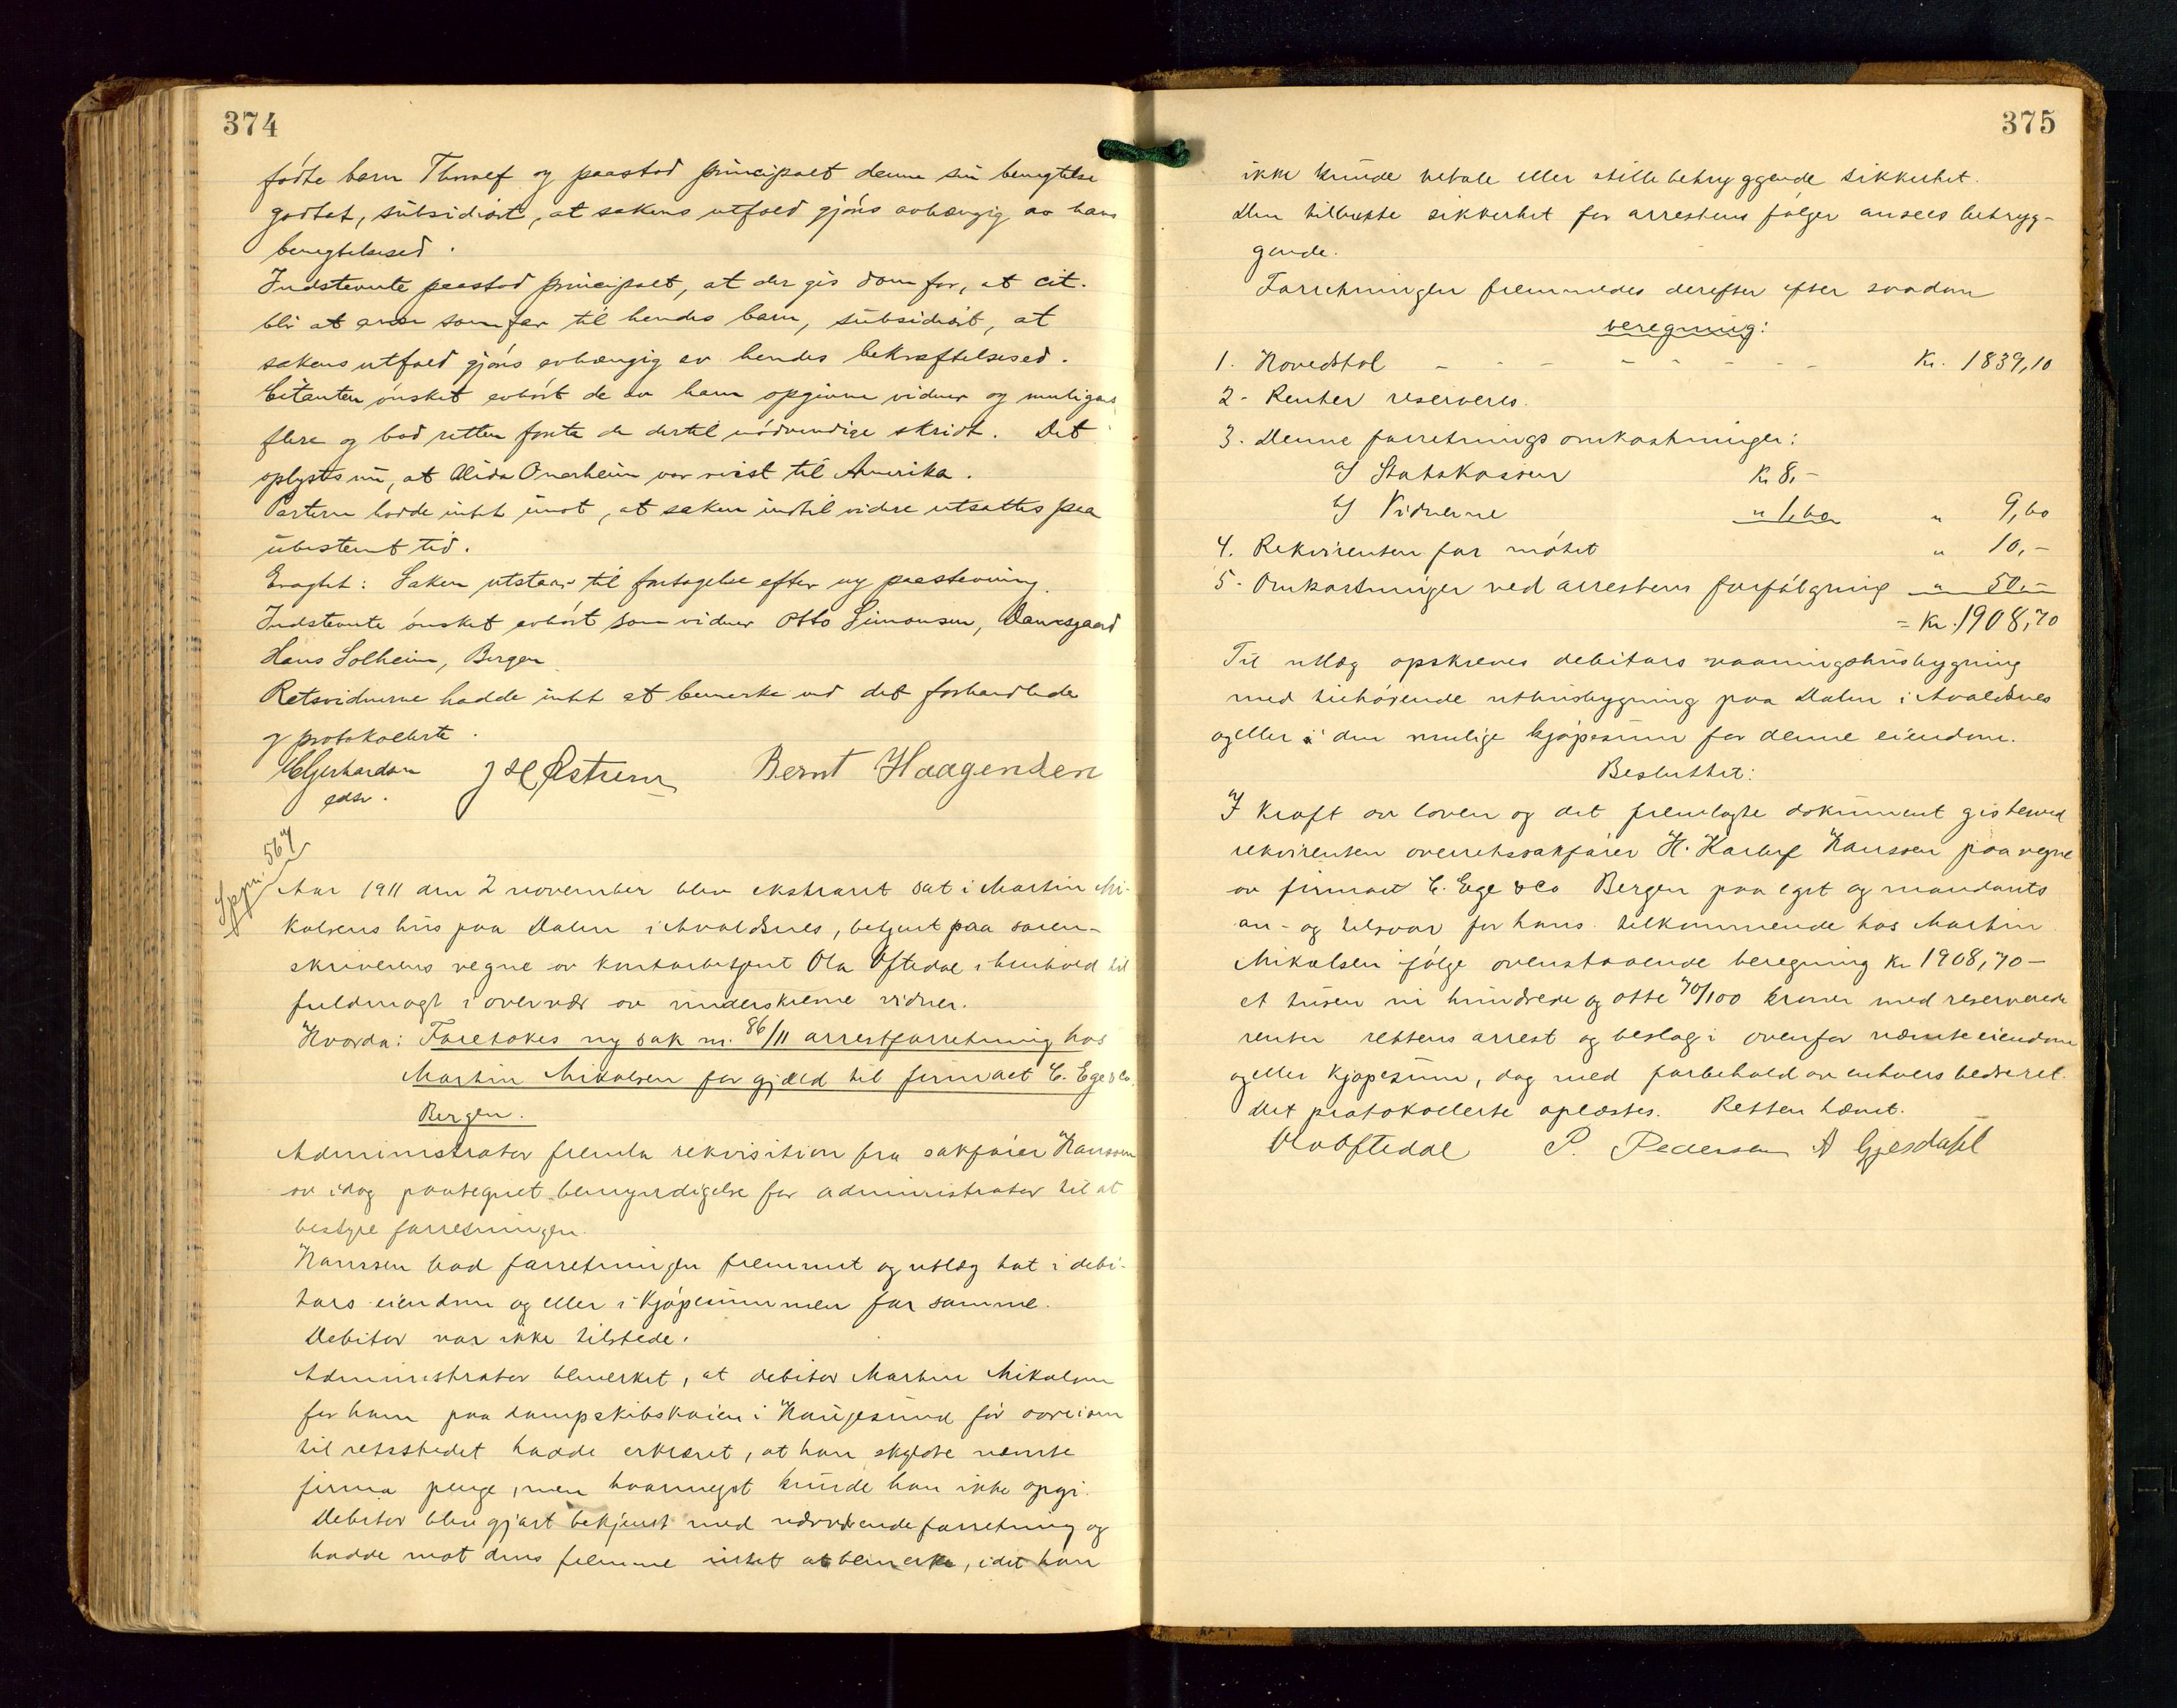 374
fødte barn Thoralf og paastod principalt denne sin benegtelse
godtat, subsidiært, at sakens utfald gjøres avhængig av hans
benegtelsesed.
Indstevnte paastod principalt, at der gis dom for, at cit.
bli at anse som far til hendes barn, subsidiært, at
sakens utfald gjøres avhængig av hendes bekræftelsesed.
Citanten ønsket avhørt de av ham opgivne vidner og muligens
flere og bad retten foreta de dertil nødvendige skridt. Det
oplystes nu, at Alida Onarheim var reist til Amerika.
Parterne hadde intet imot, at saken indtil videre utsattes paa
ubestemt tid.
Eragtet: Saken utstaar til foretagelse efter ny paastevning.
Indstevnte ønsket avhørt som vidner Otto Simonsen, Danesgaard
Hans Solheim, Bergen
Retsvidnerne hadde intet at bemerke ved det forhandlede
og protokollerte.
C Gjerhardsen J H Østrem Bernt Haagensen
edsv.
Sppn. 567
Aar 1911 den 2 november blev ekstraret sat i Martin Mi-
kalsens hus paa Dalen i Avaldsnes, betjent paa soren-
skriverens vegne av kontorbetjent Ola Oftedal i henhold til
fuldmagt i overvær av underskrevne vidner.
Hvorda: Foretokes ny sak nr. 86/11 arrestforretning hos
Martin Mikalsen for gjæld til firmaet C. Ege & Co.
Bergen.
Administrator fremla rekvisition fra sakfører Hanssen
av idag paategnet bemyndigelse for administrator til at
bestyre forretningen.
Hanssen bad forretningen fremmet og utlæg tat i debi-
tors eiendom og eller i kjøpesummen for samme.
Debitor var ikke tilstede.
Administrator bemerket, at debitor Martin Mikalsen
for ham paa dampskibskaien i Haugesund før avreisen
til retsstedet hadde erklæret, at han skyldte nævnte
firma penge, men hvormeget kunde han ikke opgi.
Debitor blev gjort bekjent med nærværende forretning og
hadde mot dens fremme intet at bemerke, idet han
375
ikke kunde betale eller stille betryggende sikkerhet.
Den tilbudte sikkerhet for arrestens følger ansees betryg-
gende.
Forretningen fremmedes derefter efter saadan
beregning:
1. Hovedstol - - - - - - - Kr. 1839,10
2. Renter reserveres.
3. Denne forretnings omkostninger:
a/ Statskassen Kr 8,-
b/ Vidnerne " 1,60 " 9,60
4. Rekvirenten for møtet " 10,-
5. Omkostninger ved arrestens forfølgning " 50,-
= Kr. 1908,70
Til utlæg opskreves debitors vaaningshusbygning
med tilhørende uthusbygning paa Dalen i Avaldsnes
og eller i den mulige kjøpesum for denne eiendom.
Besluttet:
I kraft av loven og det fremlagte dokument gis herved
rekvirenten overretssakfører H. Karluf Hanssen paa vegne
av firmaet C. Ege & Co Bergen paa eget og mandants
an- og tilsvar for hans tilkommende hos Martin
Mikalsen ifølge ovenstaaende beregning Kr 1908,70 -
et tusen ni hundrede og otte 70/100 kroner med reserverede
renter rettens arrest og beslag i ovenfor nævnte eiendom
og eller kjøpesum, dog med forbehold av enhvers bedre ret.
Det protokollerte oplæstes. Retten hævet.
Ola Oftedal P. Pedersen A Gjesdahl